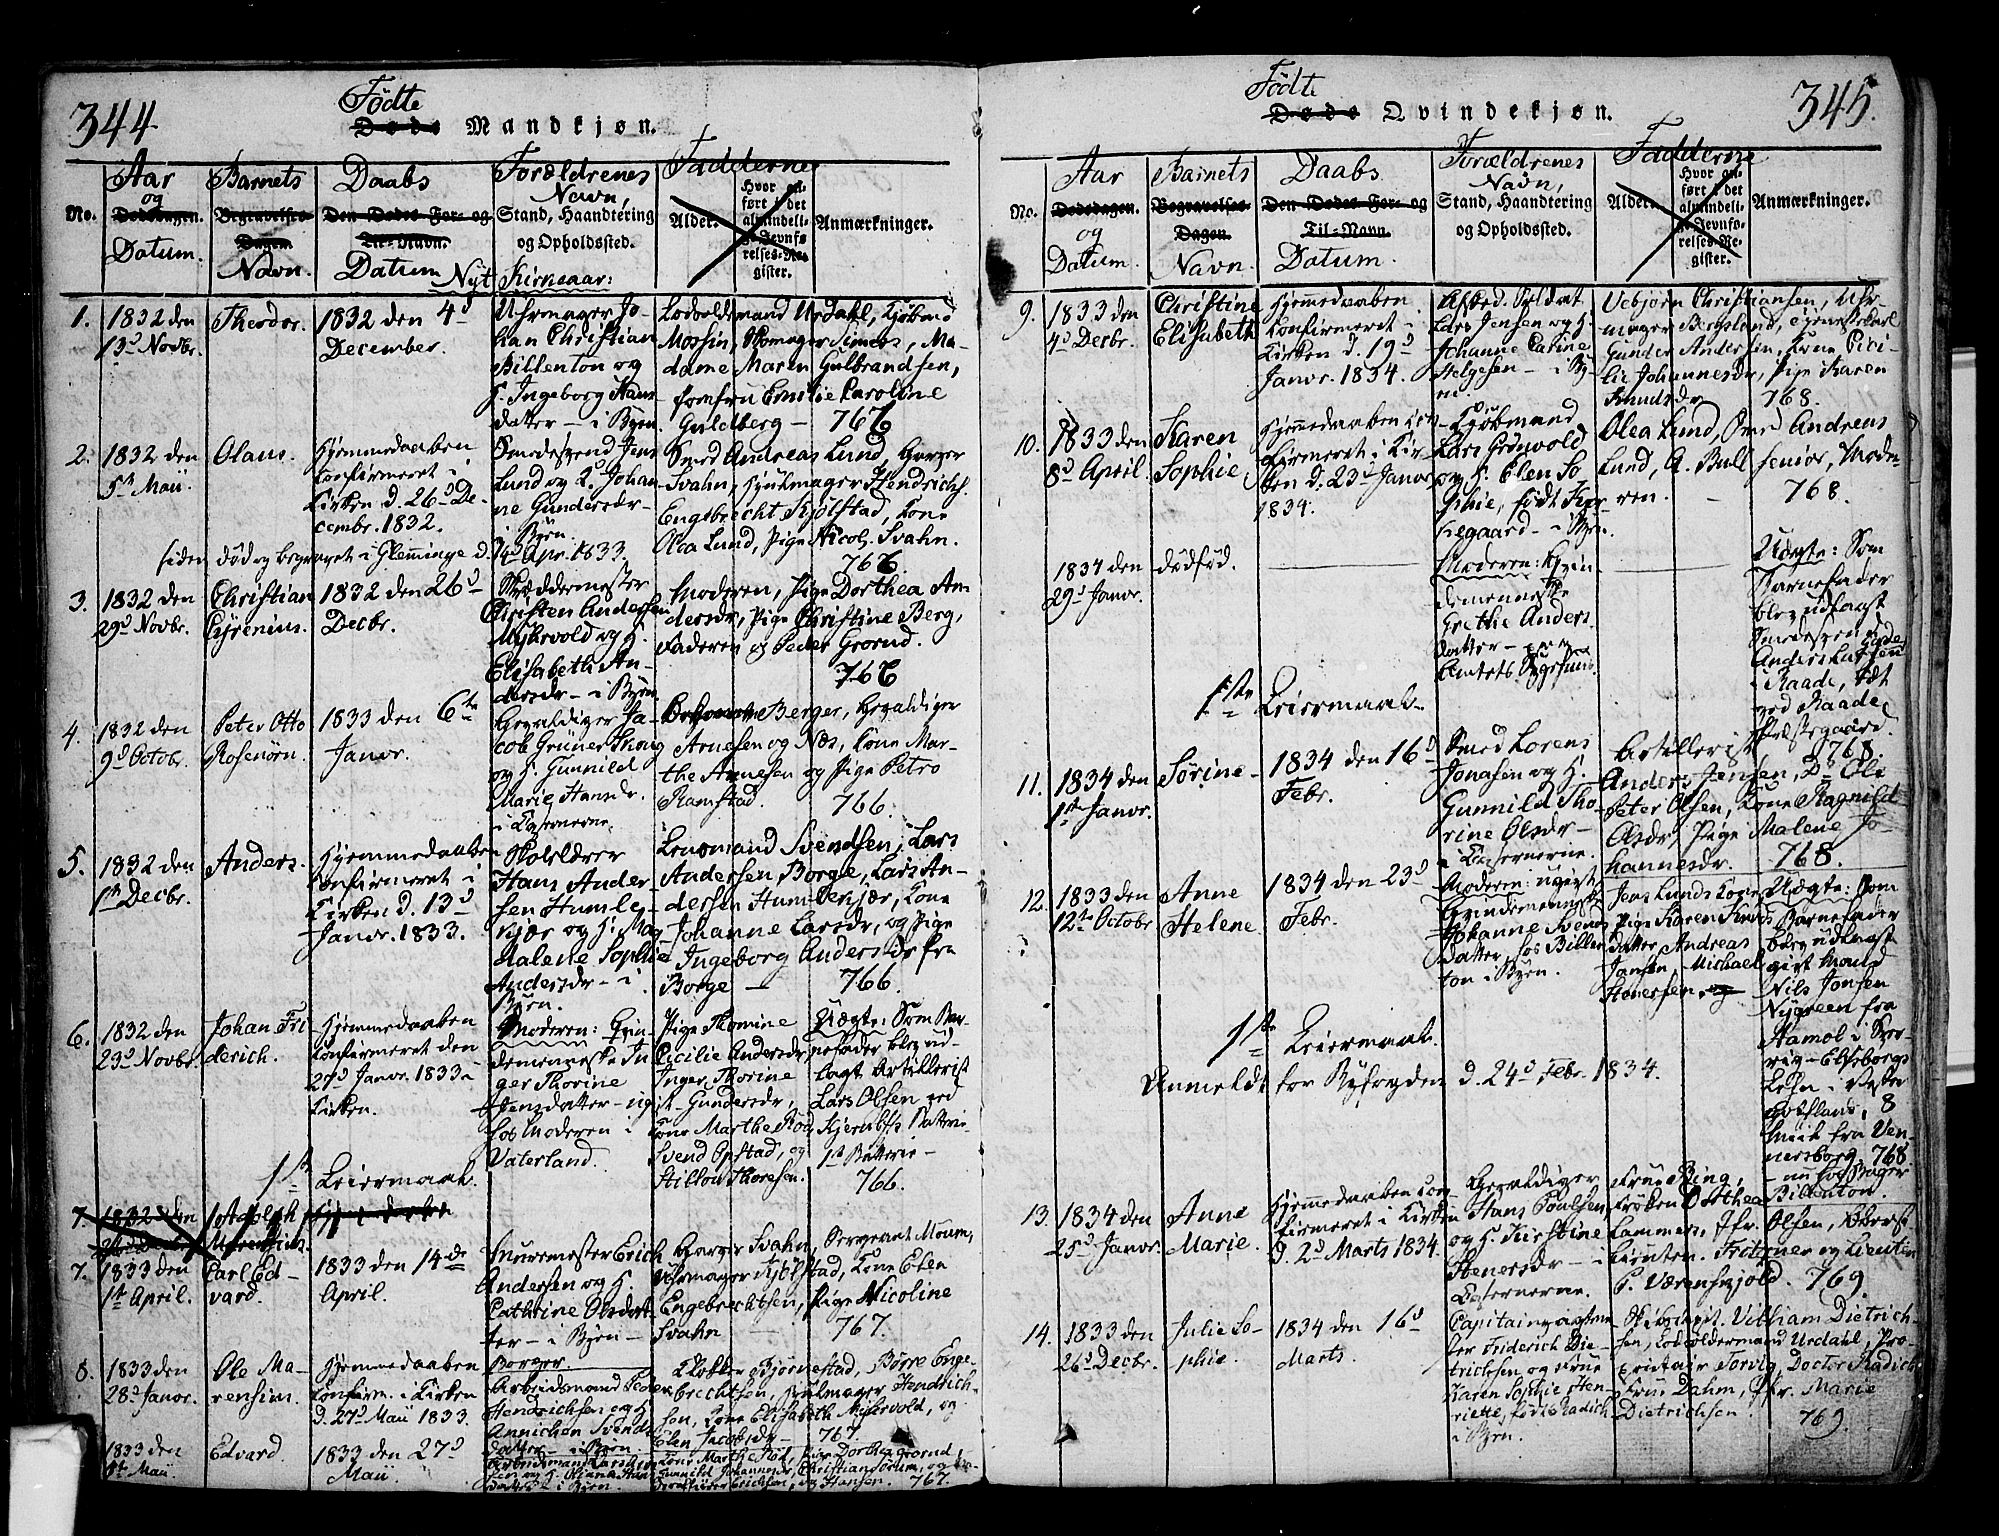 344
Fødte
Døde Mandkjøn.
No.
Aar
og
Dødsdagen.
Datum.
Barnets
Begravelses-
Dagen.
Navn.
Daabs
Den Dødes For- og
Til-Navn.
Datum
Forældrenes
Navn,
Stand, Haandtering
og Opholdssted.
Fadderne
Alder.
Hvor an-
ført i det
almindeli-
ge Jevnfø-
relses-Re-
gister.
Anmærkninger.
Nyt Kirkeaar:
1.
1832 den
13d Novbr.
Theodor.
1832 den 4d
December.
Uhrmager Jo-
han Christian
Billenton og
H. Ingeborg Hans-
datter – i Byen.
Lodsoldermand Urdahl, Kjøbmd
Mossin, Skomager Simers, Ma-
dame Maren Gulbrandsen,
Jomfru Emilie Caroline
Guldberg – 766
2.
1832 den
5te Maii.
Olaus.
Hjemmedaaben
confirmeret i
Kirken d. 26d De-
cembr. 1832.
Smedesvend Jens
Lund og K. Johan-
ne Gundersdr –
i Byen.
Smed Andreas Lund, Garver
Svahn, Hjulmager Hendrichs.
Engebrecht Kjølstad, Kone
Olea Lund, Pige Nicol. Svahn.
766
siden død og begravet i Glemminge d. 14d Apr. 1833.
3.
1832 den
29d Novbr.
Christian
Cyrenius.
1832 den 26d
Decbr.
Skræddermester
Christen Andersen
Myhrvold og H.
Elisabeth An-
dersdr – i Byen.
Moderen, Pige Dorthea An-
dersdr, Pige Christine Berg,
Faderen og Peder Grorud.
766
4.
1832 den
9d Octobr.
Peter Otto
Rosenørn.
1833 den 6te
Janvr.
Gevaldiger Ja-
cob Grüner Skoug
og H. Gunnild
Marie Hansdr.
i Casernerne.
Berger, Gevaldiger
Arnesen og Næs, Kone Mar-
the Arnesen og Pige Petro
Ramstad. 766.
5.
1832 den
1te Decbr.
Anders.
Hjemmedaaben
confirmeret i
Kirken d. 13d
Janvr. 1833.
Skolelærer
Hans Ander-
sen Humle-
kjær og H. Mag-
dalene Sophie
Andersdr – i
Byen.
Lensmand Svendsen, Lars
Andersen Borge, Lars An-
dersen Humlekjær, Kone
Johanne Larsdr, og Pige
Ingeborg Andersdr fra
Borge – 766.
6.
1832 den
23d Novbr.
Johan Fri
derich.
Hjemmedaaben
confirmeret den
27d Janvr. 1833 i
Kirken.
Moderen: Qvin-
demenneske In-
ger Thorine
Jensdatter – ugift
hos Moderen i
Vaterland.
Pige Thomine
Cicilie Andersdr,
Inger Thorine
Gundersdr,
Kone Marthe Rød,
Svend Opstad, og
Stillou Thoresen.
Uægte: Som Bar-
nefader blev ud-
lagt Artillerist
Lars Olsen ved
Hjerulffs Batterie
1te Batterie –
766.
1ste Leiermaal.
7.
1832 den
Adolph
7.
1833 den
1te April.
Carl Ed-
vard.
1833 den 14de
April.
Muurmester Erich
Andersen og H.
Cathrine Olsdat-
ter – i Byen –
Garver Svahn, Sergeant Moum,
Uhrmager Kjølstad, Kone Elen
Engebrechtsen, Pige Nicoline
Svahn – 767.
8.
1833 den
28d Janvr.
Ole Ma-
rensius.
Hjemmedaaben
Confirm. i Kirken
d. 27d Maii 1833.
Borger
Arbeidsmand Peder
Hendrichsen og H.
Annichen Svends-
datter – i Byen.
Klokker Bjørnestad, Børre Enge-
brechtsen, Hjulmager Hendrich-
sen, Kone Elisabeth Myhrvold, og
Elen Jacobsdr – 767.
1833 den
Maii
Edvard.
1833 den 27d
Maii.
Kone Marthe Rød, Pige Dorthea Grorud,
Gunnild Johannesdr, Christian Sørum, og
Hansen. 767.
345.
Fødte
Døde Qvindekjøn.
No.
Aar
Dødsdagen.
og
Datum.
Barnets
Begravelses-
Dagen.
Navn.
Daabs
Den Dødes For- og
Til-Navn.
Datum.
Forældrenes
Navn,
Stand, Haandtering
og Opholdssted.
Fadderne
Alder.
Hvor an-
ført i det
almindeli-
ge Jevnfø-
relses-Re-
gister.
Anmærkninger.
9.
1833 den
4d Decbr.
Christine
Elisabeth
Hjemmedaaben
Confirmeret i
Kirken d. 19d
Janvr. 1834.
Afsked. Soldat
Lars Jensen og H.
Johanne Catrine
Helgesen – i By-
en.
Uebjørn Christiansen, Uhr-
mager Bergslund, Tjenestekarl
Gunder Andersen, Kone Cici-
lie Johannesdr, Pige Karen
Knudsdr 768.
10.
1833 den
8d April.
Karen
Sophie.
Hjemmedaaben con-
firmeret i Kir-
ken d. 23d Janvr.
1834.
Kjøbmand
Lars Grønvold
og H. Elen So-
phie, født Kir-
kegaard – i Byen.
Olea Lund, Smed Andreas
Lund, A. Bull senior, Mode-
ren. – 768.
1834 den
29d Janvr.
dødfød.
Moderen: Qvin-
demenneske
Grethe Anders-
datter –
Amtets Sygehuus.
Uægte: Som
Barnefader
blev udlagt
Smedesvend
Anders Larsen
i Raade, tæt
ved Raade
Præstegaard.
768.
1ste Leiermaal.
11.
1834 den
1te Janvr.
Sørine –
1834 den 16d
Febr.
Smed Lorens
Jonasen og H.
Gunnild Tho-
rine Olsdr –
i Casernerne.
Artillerist
Anders Jensen, Do Ole
Peter Olsen, Kone Ragnild
Olsdr, Pige Malene Jo-
hannesdr. 768.
12.
1833 den
12te Octobr.
Anne
Helene
1834 den 23d
Febr.
Moderen: ugift
Qvindemenneske
Johanne Svens-
datter, hos Billen-
ton i Byen.
Jens Lunds Kone,
Pige Karen Knuds-
datter, Andreas
Jansen, Michael
Stenersen, og
Uægte: Som
Barnefader
blev udlagt
gift Mand
Nils Jonsen
Nygreen fra
Aamol i Sver-
rig – Elfsborgs
Lehn i Vester-
gothland, 8
Miil fra Ven-
nersborg. 768
– nu hos Bager
Billenton.
1ste Leiermaal.
Anmeldt for Byfogden d. 24d Febr. 1834.
13.
1834 den
25d Janvr.
Anne
Marie.
Hjemmedaaben con-
firmeret i Kirken
d. 2d Marts 1834.
Gevaldiger
Hans Poulsen,
og H. Kirstine
Stenersdr – i
Casernerne.
Frue Bing,
Frøken Dorthea
Lammers, Jfr. Olsen, Oberst
Fritzner og Lieuten.
P. Værenskjold. 769.
14.
1833 den
26d Decbr.
Julie So-
phie.
1834 den 16d
Marts.
Capitainvagtme-
ster Friderich Die-
trichsen og Frue
Karen Sophie Hen-
riette, født Radich
i Byen.
Skibscapit. William Dietrich-
sen, Lodsoldermand Urdahl, Pro-
prietair Torvig, Doctor Radich,
Frue Dahm, Jfr. Marie
Dietrichsen. 769.